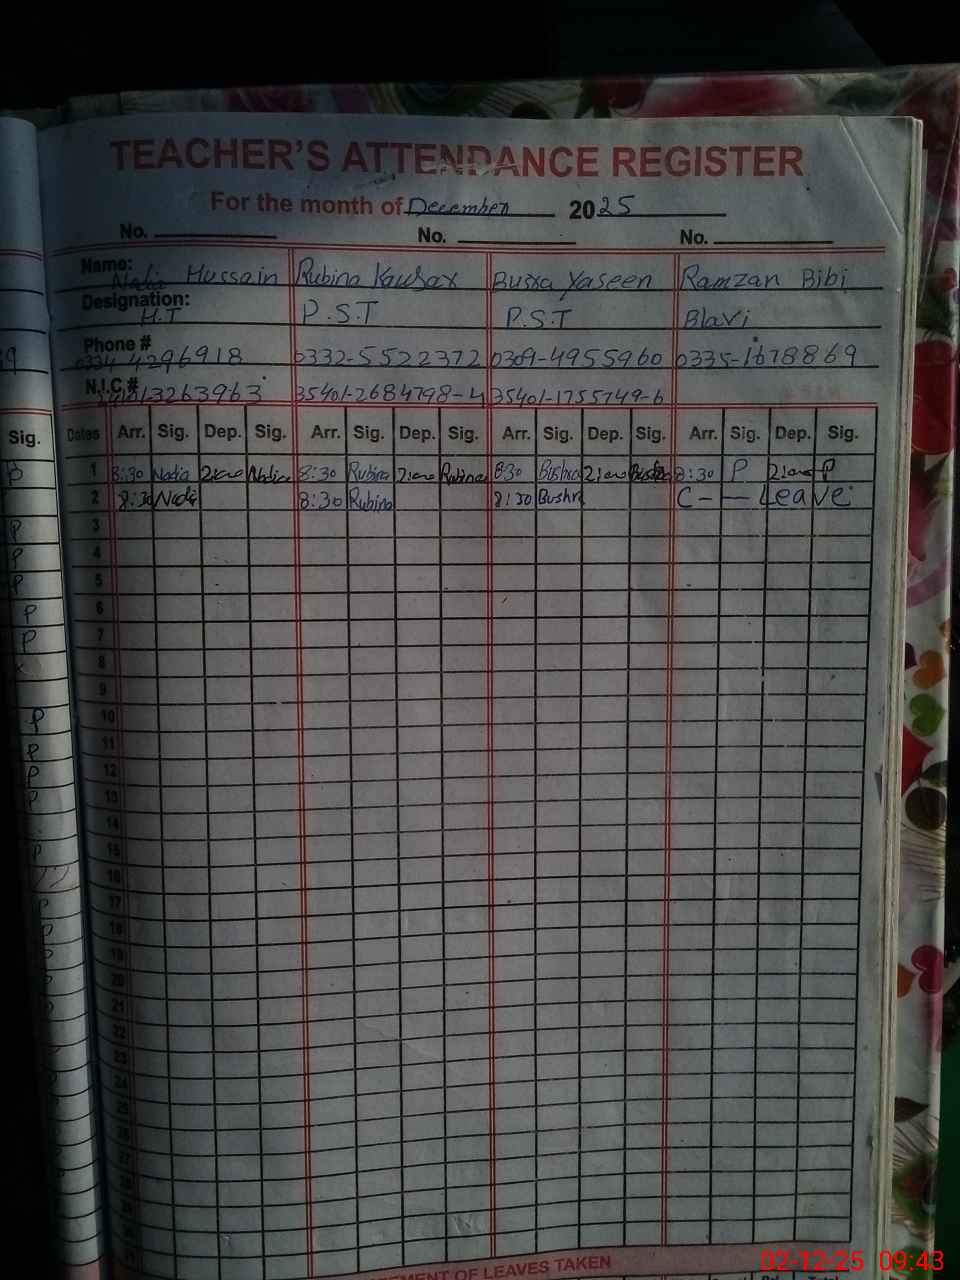 TEACHER'S ATTENDANCE REGISTER
For the month of December 2025
No. No. No.
Name: Nadia Hussain Rubina Kausar Busra Yaseen Ramzan Bibi
Designation: H.T P.S.T P.S.T Blavi
Phone # 0334 4296918 0332-5522372 0309-4955960 0335-1678869
N.I.C.# 3263963 35401-2684798-4 35401-1755749-6
Sig. Dates Arr. Sig. Dep. Sig. Arr. Sig. Dep. Sig. Arr. Sig. Dep. Sig. Arr. Sig. Dep. Sig.
P 1 8:30 Nadia 2:00 Nadia 8:30 Rubina 2:00 Rubina 8:30 Bushra 2:00 Bushra 8:30 P 2:00 P
2 8:30 Nadia 8:30 Rubina 8:30 Bushra C - - Leave
P 3
P 4
P 5
P 6
P 7
8
9
P 10
P 11
P 12
P 13
14
P 15
16
P 17
P 18
P 19
20
21
22
23
24
25
26
27
28
29
30
31
OF LEAVES TAKEN
02-12-25 09:43